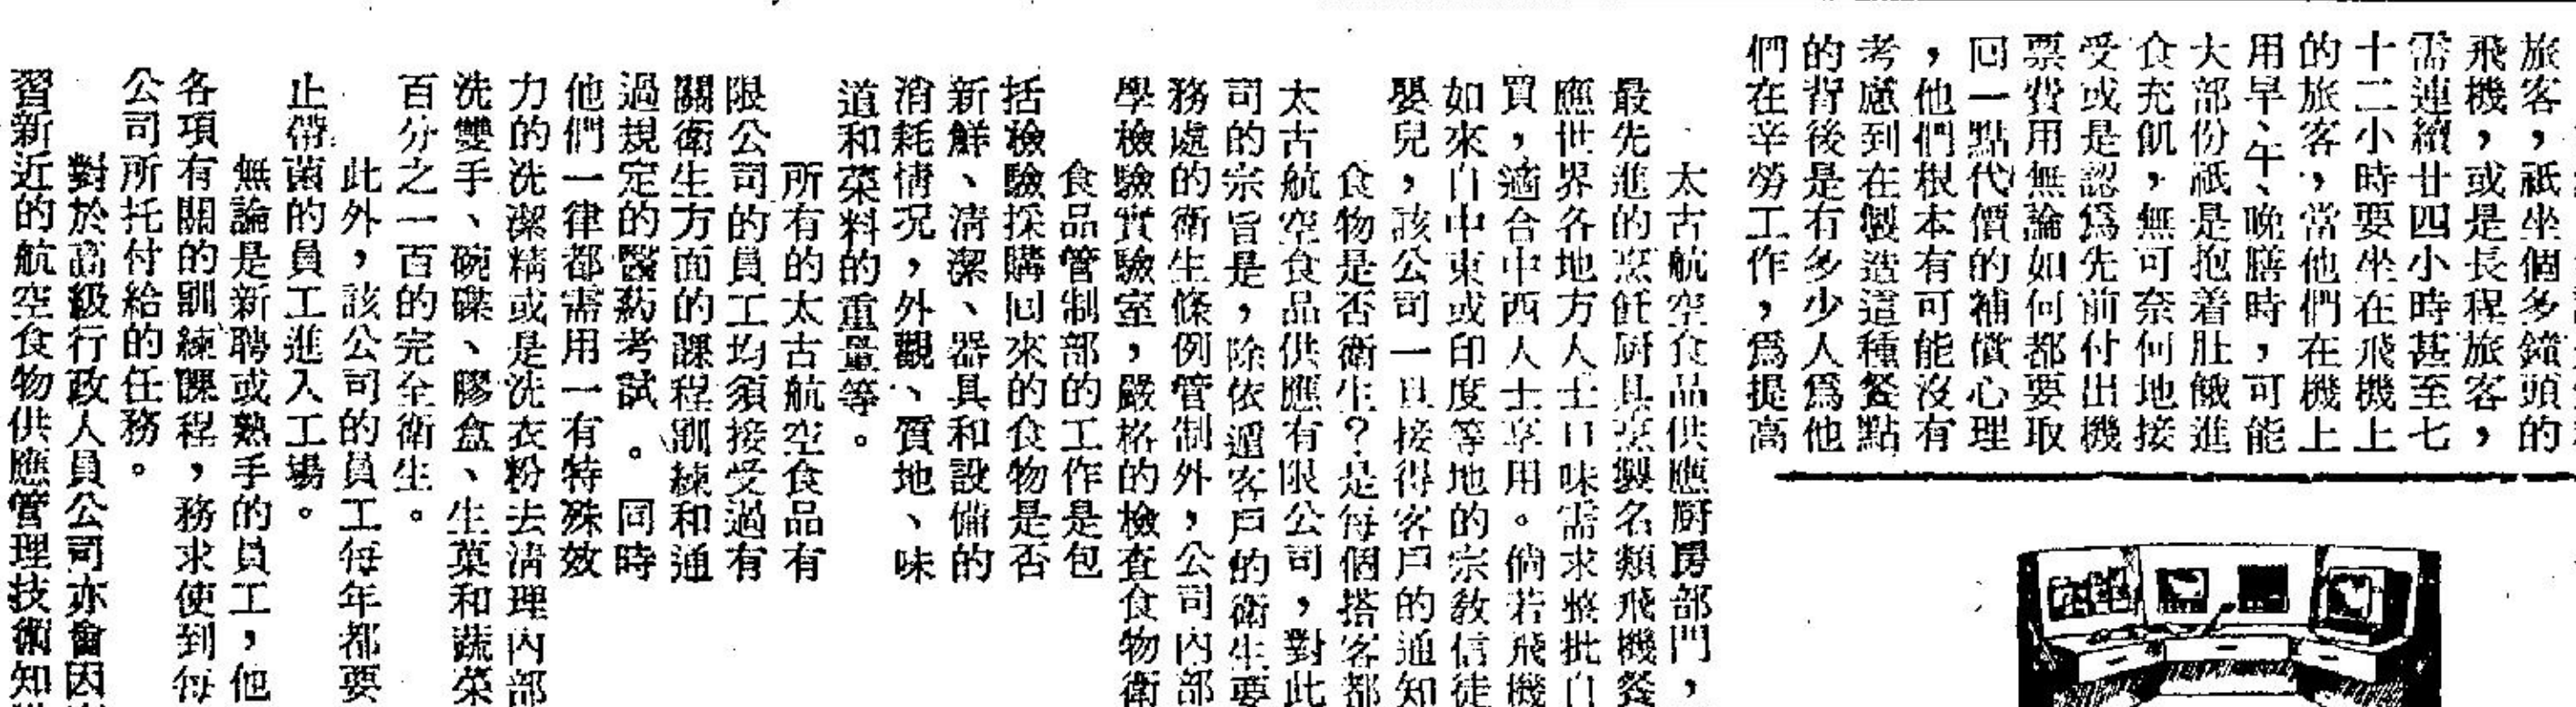 旅客，祇坐個多鐘頭的
飛機，或是長程旅客，
需連續廿四小時甚至七
十二小時要坐在飛機上
的旅客，當他們在機上
用早、午、晚膳時，可能
大部份祇是抱着肚餓進
食充飢，無可奈何地接
受或是認爲先前付出機
票費用無論如何都要取
回一點代價的補償心理
，他們根本有可能沒有
考慮到在製造這種餐點
的背後是有多少人爲他
們在辛勞工作，爲提高
太古航空食品供應厨房部門，
最先進的烹飪厨具烹製名類飛機餐
應世界各地方人士口味需求整批自
買，適合中西人士享用。倘若飛機
如來自中東或印度等地的宗敎信徒
嬰兒，該公司一旦接得客戶的通知
食物是否衛生？是每個搭客都
太古航空食品供應有限公司，對此
司的宗旨是，除依遁客戶的衛生要
務處的衛生條例管制外，公司內部
學檢驗實驗室，嚴格的檢查食物衛
食品管制部的工作是包
括檢驗採購回來的食物是否
新鮮、淸潔、器具和設備的
消耗情况，外觀、質地、味
道和菜料的重量等。
所有的太古航空食品有
限公司的員工均須接受過有
關衛生方面的課程訓練和通
過規定的醫葯考試。同時
他們一律都需用一有特殊效
力的洗潔精或是洗衣粉去淸理內部
洗雙手、碗碟、膠盒、生菓和蔬菜
百分之一百的完全衛生。
此外，該公司的員工每年都要
止帶菌的員工進入工場。
無論是新聘或熟手的員工，他
各項有關的訓練課程，務求使到每
公司所托付給的任務。
對於高級行政人員公司亦會因
習新近的航空食物供應管理技術知